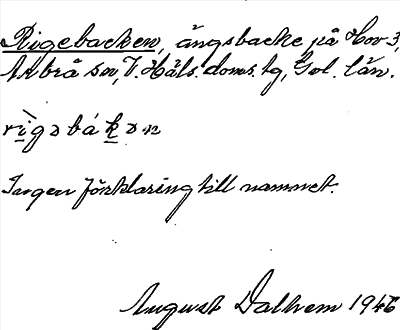 Rigebacken, ängsbacke på Hov 3,
Arbrå sn, V. Häls. doms. tg, Gvl. län.
rìgəbákən
Ingen förklaring till namnet.
August Dalhem 1946